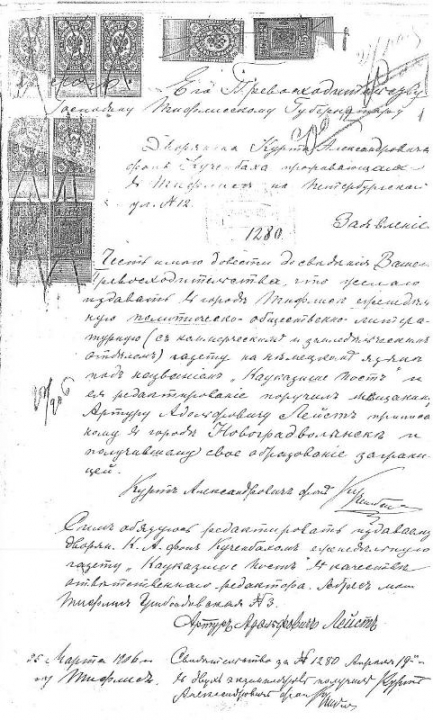 Его Превосходительству
Господину Тифлисскому Губернатору
Дворянина Курта Александровича
фонъ Кученбаха проживающаго
въ Тифлисѣ на Петербургской
ул. № 12.
Заявленіе
1280
Честь имѣю довести до свѣдѣнія Вашего
Превосходительства, что желаю
издавать въ городѣ Тифлисѣ еженедѣль
ную политическо-общественно-литера
турную (съ коммерческимъ и
отдѣломъ) газету на нѣмецкомъ языкѣ
подъ названіемъ „Кауказише Постъ" и
ея редактированіе поручилъ мѣщанину
Артуру Адольфовичу Лейстъ приписан
ному въ городѣ Новоградволынскъ и
получившему свое образованіе заграни
цей.
Куртъ Александровичъ фонъ
Симъ обязуюсь редактировать издаваемую
дворян. К. А. фонъ Кученбахомъ еженедѣльную
газету „Кауказише Постъ" въ качествѣ
отвѣтственнаго редактора. Адресъ мой
Тифлисъ Грибоѣдовская № 3.
Артуръ Адольфовичъ Лейстъ
25 Марта 1906 г.
гор Тифлисъ.
Свидѣтельство за № 1280 Апрѣля 19
въ двухъ экземплярахъ получилъ Куртъ
Александровичъ фонъ